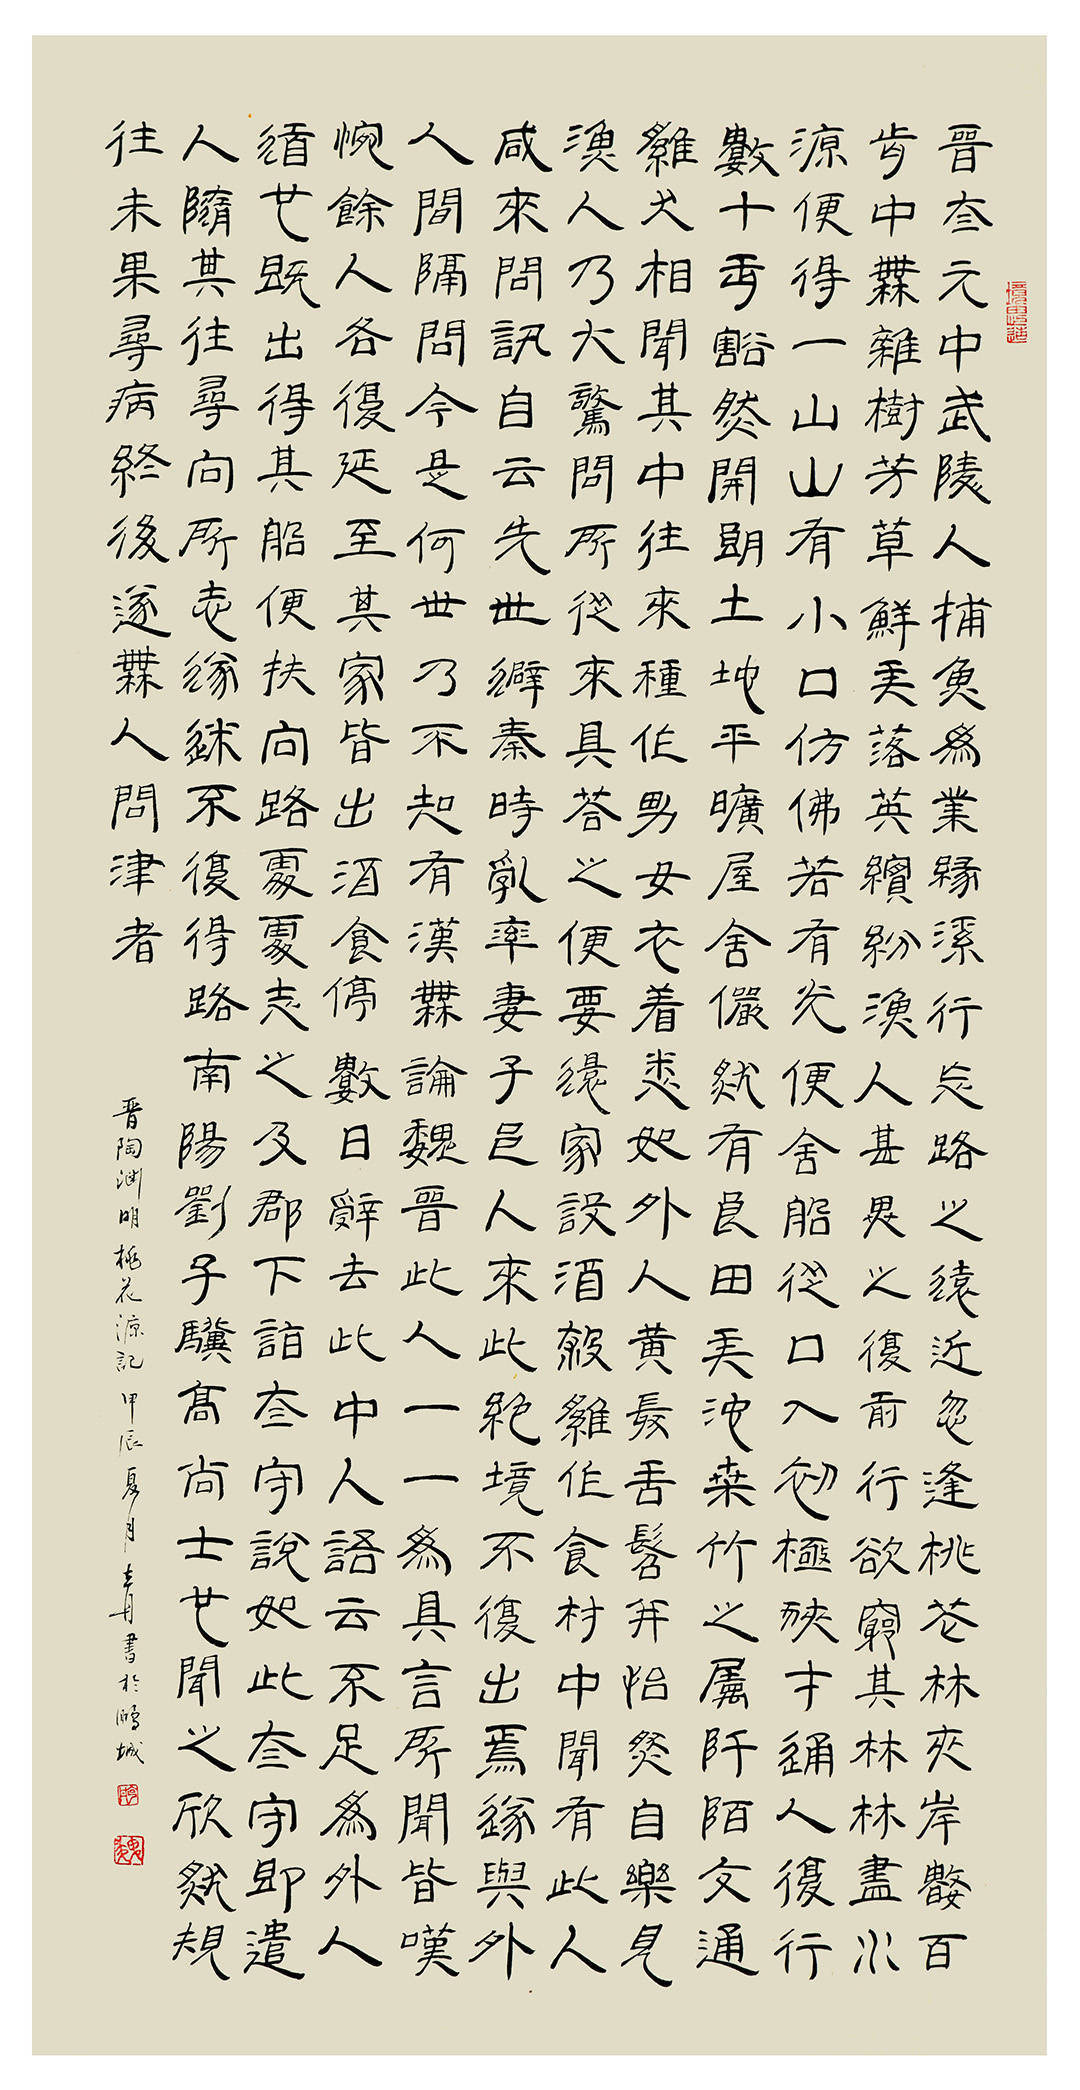 晉太元中武陵人捕魚為業緣溪行忘路之遠近忽逢桃花林夾岸數百
步中無雜樹芳草鮮美落英繽紛漁人甚異之復前行欲窮其林林盡水
源便得一山山有小口仿佛若有光便舍船從口入初極狹才通人復行
數十步豁然開朗土地平曠屋舍儼然有良田美池桑竹之屬阡陌交通
雞犬相聞其中往來種作男女衣着悉如外人黃髮垂髫并怡然自樂見
漁人乃大驚問所從來具答之便要還家設酒殺雞作食村中聞有此人
咸來問訊自云先世避秦時亂率妻子邑人來此絕境不復出焉遂與外
人間隔問今是何世乃不知有漢無論魏晉此人一一為具言所聞皆嘆
惋餘人各復延至其家皆出酒食停數日辭去此中人語云不足為外人
道也既出得其船便扶向路處處志之及郡下詣太守說如此太守即遣
人隨其往尋向所志遂迷不復得路南陽劉子驥高尚士也聞之欣然規
往未果尋病終後遂無人問津者
晉陶淵明桃花源記甲辰夏月青書於鵬城